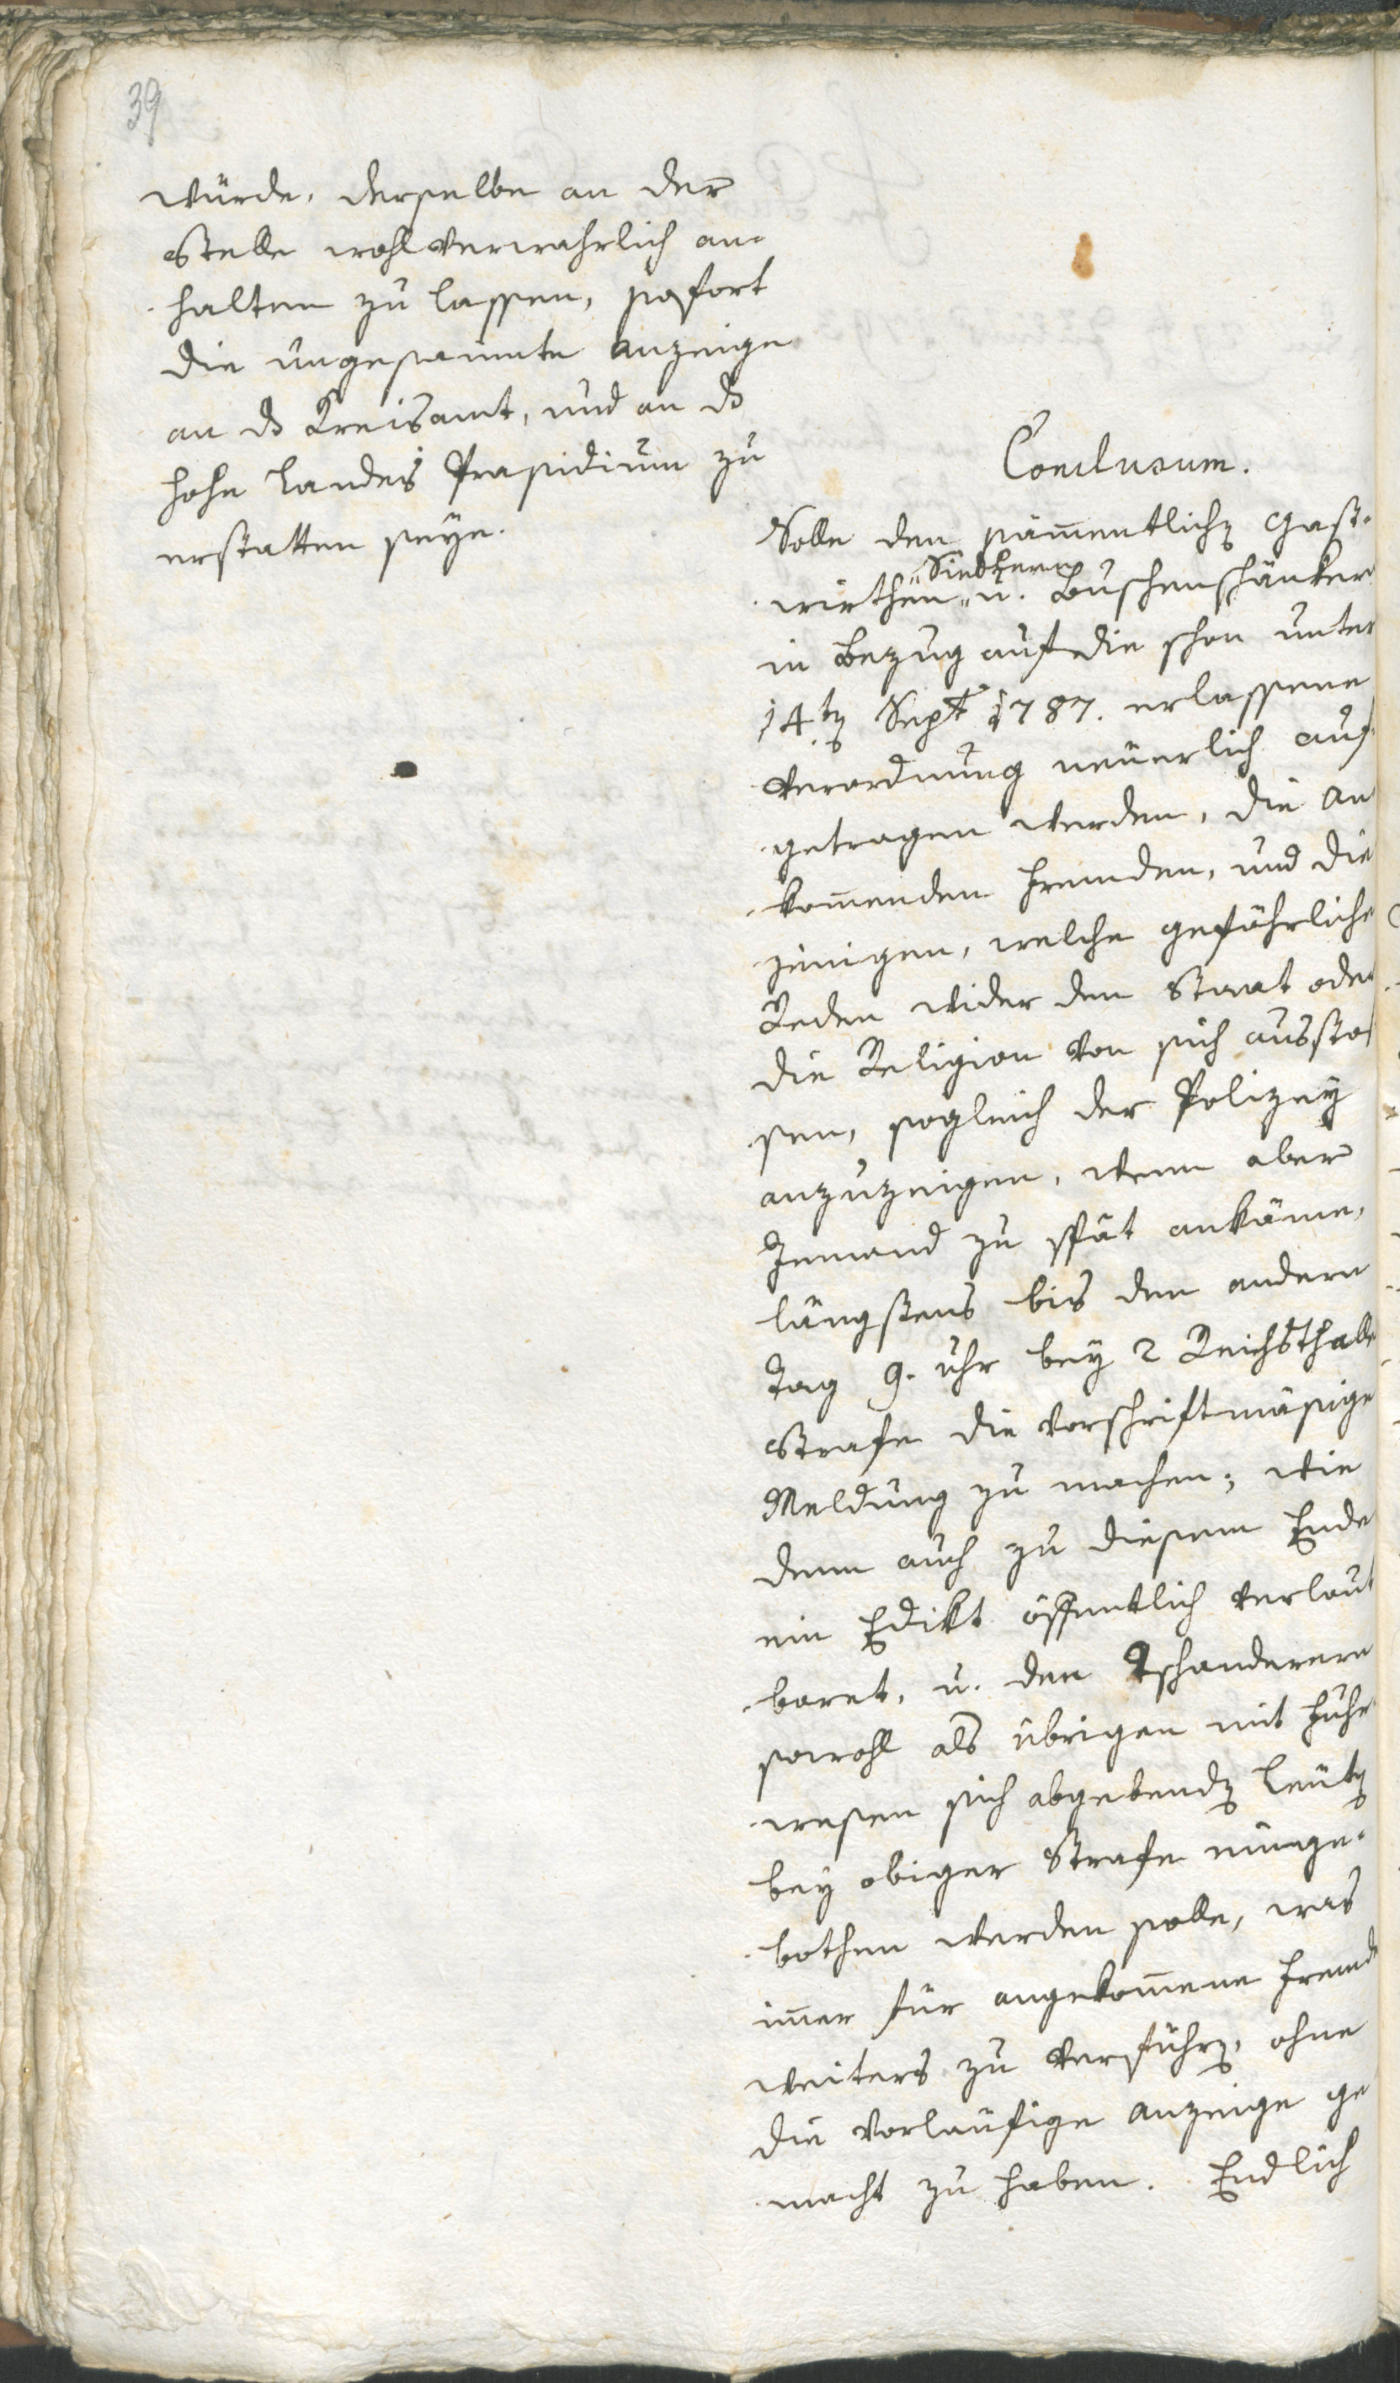 39
würde, derselbe an der
Stelle wohlverwahrlich an-
halten zu lassen, sofort
die ungesaumte Anzeige
an ds Kreisamt, und an ds
hohe Landes Præsidium zu
erstatten seye.
Conclusum.
Solle den sam̄entlichen Gast-
wirthen, Siedkern u. Buschenschänkern
in Bezug auf die schon unter
14ten Sept 1787. erlassene
Verordnung neuerlich auf-
getragen werden, die an
kom̄enden Fremden, und die
jenigen, welche gefährliche
Reden wider den Staat oder
die Religion von sich aussto
sen, sogleich der Polizey
anzuzeigen, wenn aber
Jemand zu spät ankäme,
längstens bis den andern
Tag 9. Uhr bey 2 Reichsthaller
Strafe die vorschriftmäsige
Meldung zu machen; wie
denn auch zu diesem Ende
ein Edikt öffentlich verlaut
baret, u. den Tschanderern
sowohl als übrigen mit Fuhr
wesen sich abgebenden Leuten
bey obiger Strafe einge-
bothen werden solle, was
im̄er für angekom̄ene Fremde
weiters zu verführen, ohne
die vorläufige Anzeige ge
macht zu haben. Endlich